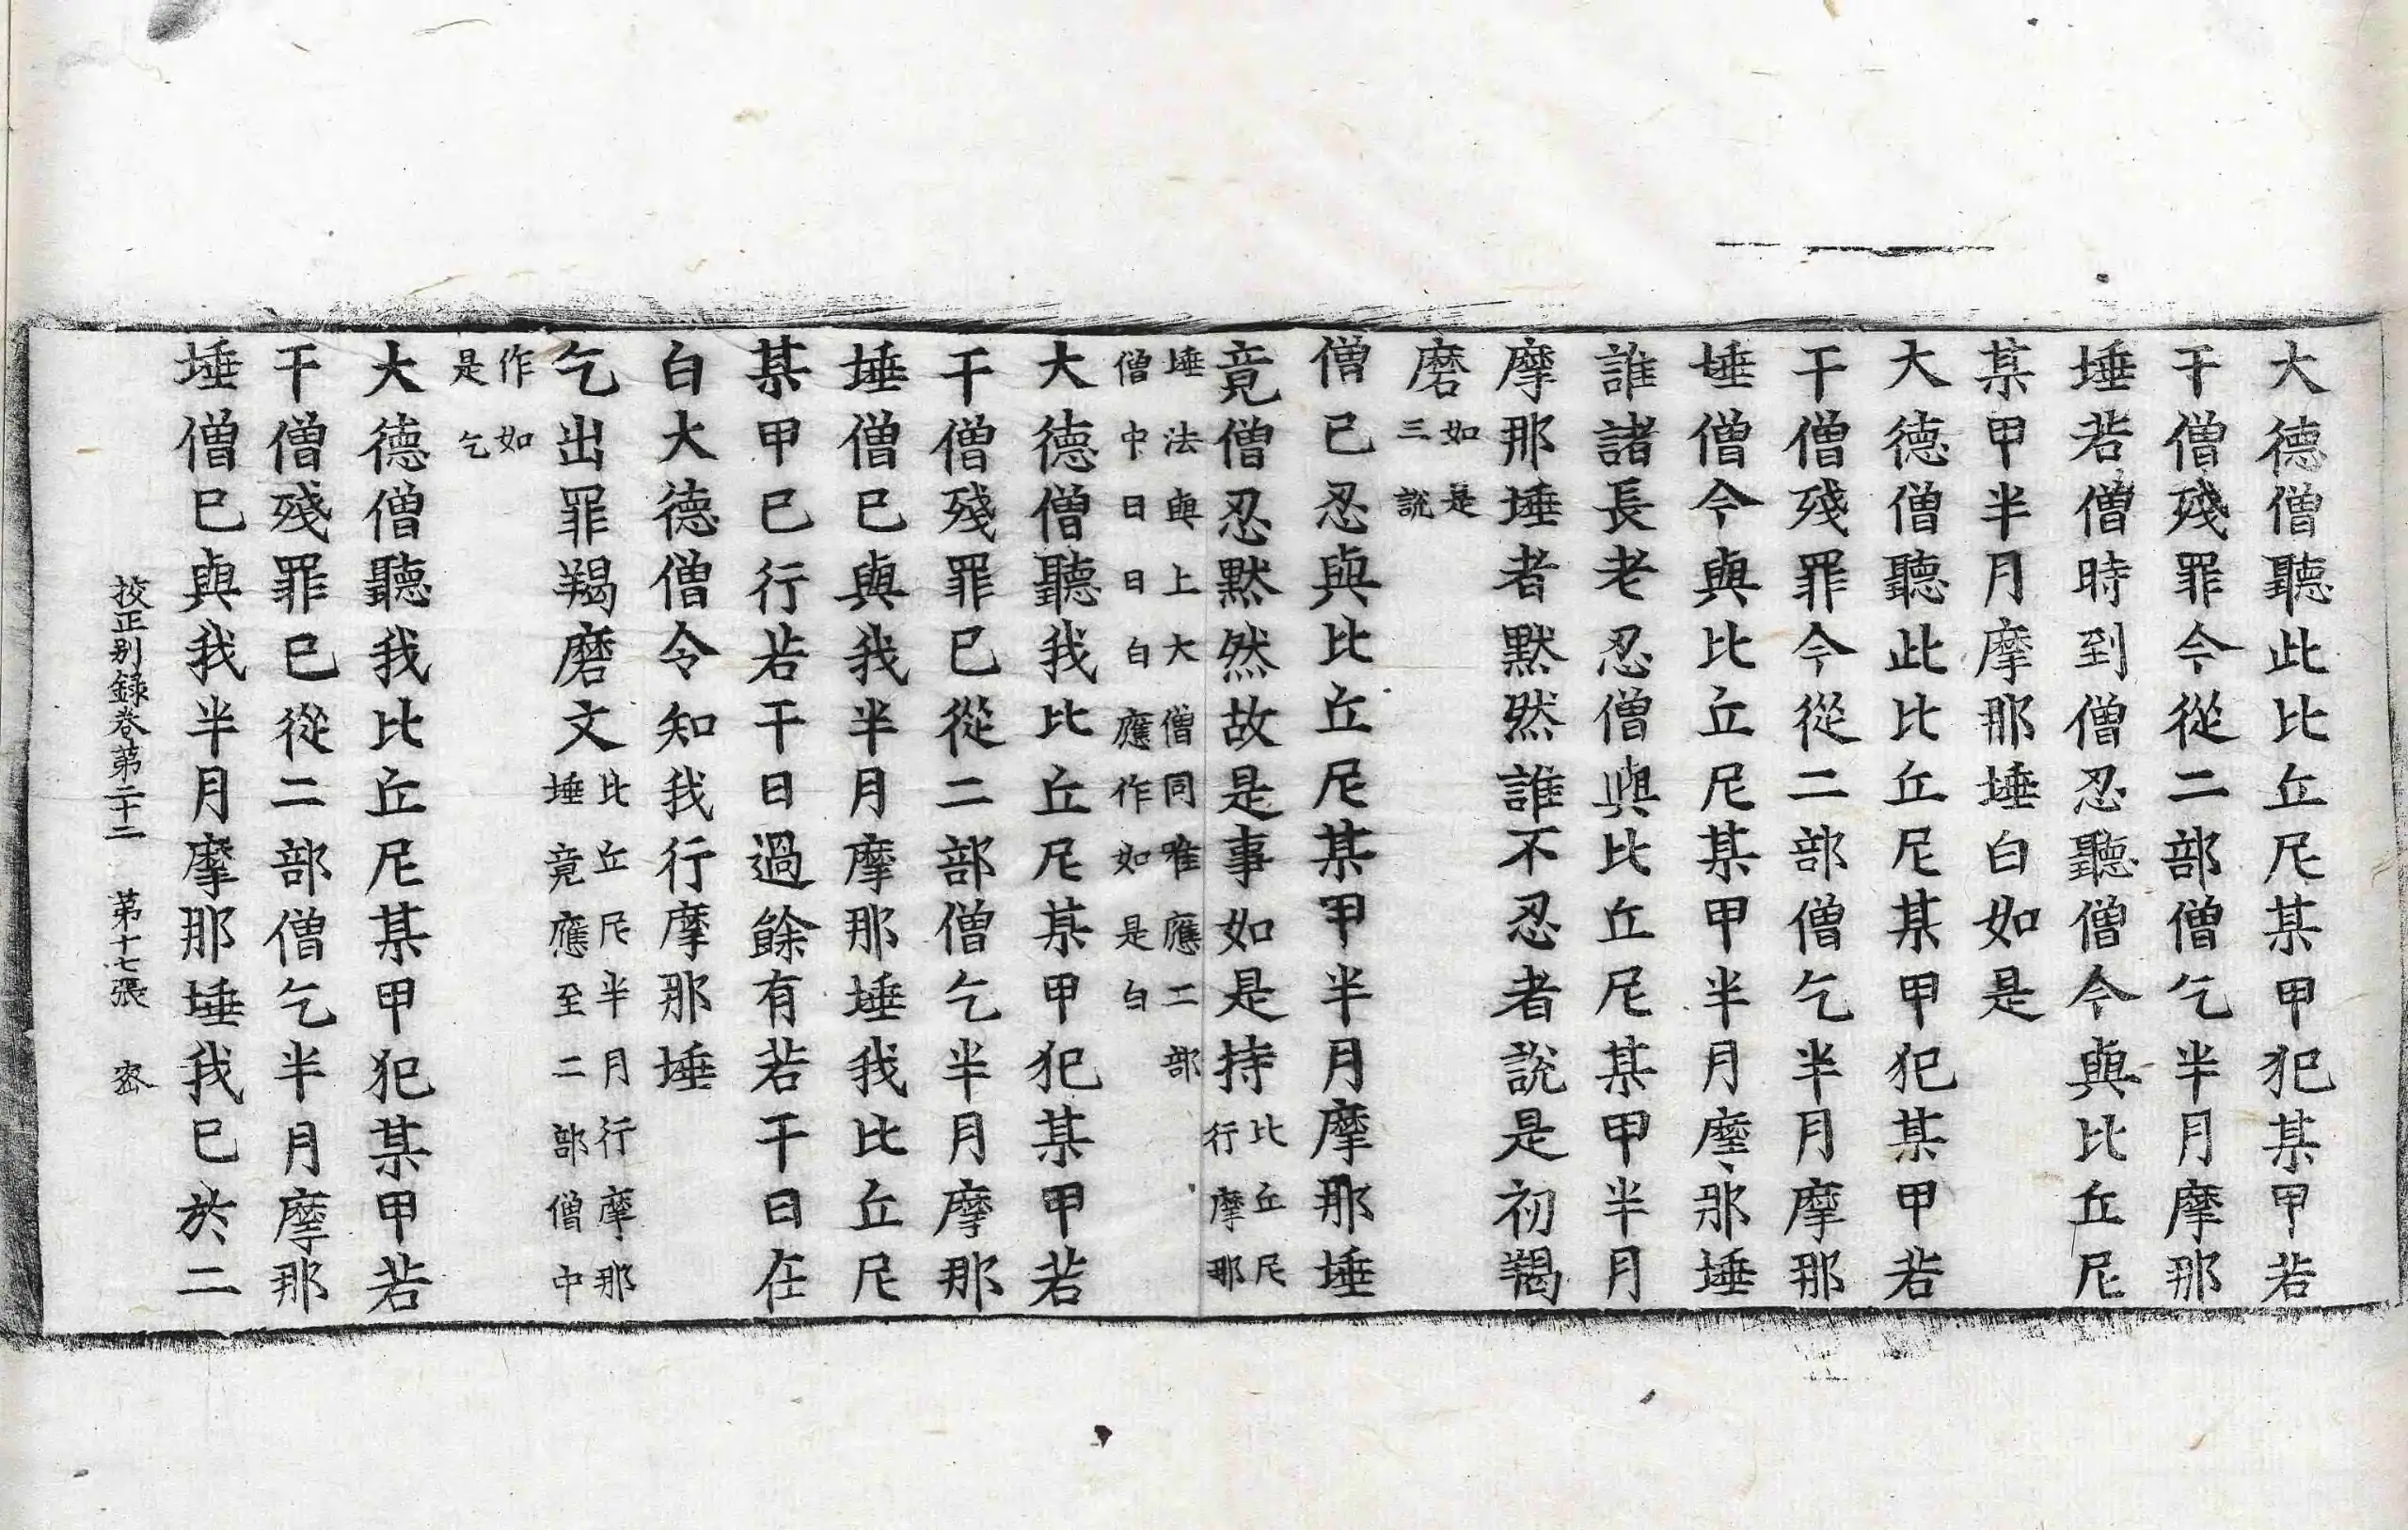 大德僧聽此比丘尼某甲犯某甲若
干僧殘罪今從二部僧乞半月摩那
埵若僧時到僧忍聽僧今與比丘尼
某甲半月摩那埵白如是
大德僧聽此比丘尼某甲犯某甲若
干僧殘罪今從二部僧乞半月摩那
埵僧今與比丘尼某甲半月摩那埵
誰諸長老忍僧與比丘尼某甲半月
摩那埵者默然誰不忍者說是初羯
磨如是三說
僧已忍與比丘尼某甲半月摩那埵
竟僧忍默然故是事如是持比丘尼行摩那
埵法與上大僧同唯應二部
僧中日日白應作如是白
大德僧聽我比丘尼某甲犯某甲若
干僧殘罪已從二部僧乞半月摩那
埵僧已與我半月摩那埵我比丘尼
某甲已行若干日過餘有若干日在
白大德僧令知我行摩那埵
乞出罪羯磨文比丘尼半月行摩那埵竟應至二部僧中
作如是乞
大德僧聽我比丘尼某甲犯某甲若
干僧殘罪已從二部僧乞半月摩那
埵僧已與我半月摩那埵我已於二
挍正别錄卷第二十二 第十七張 宻